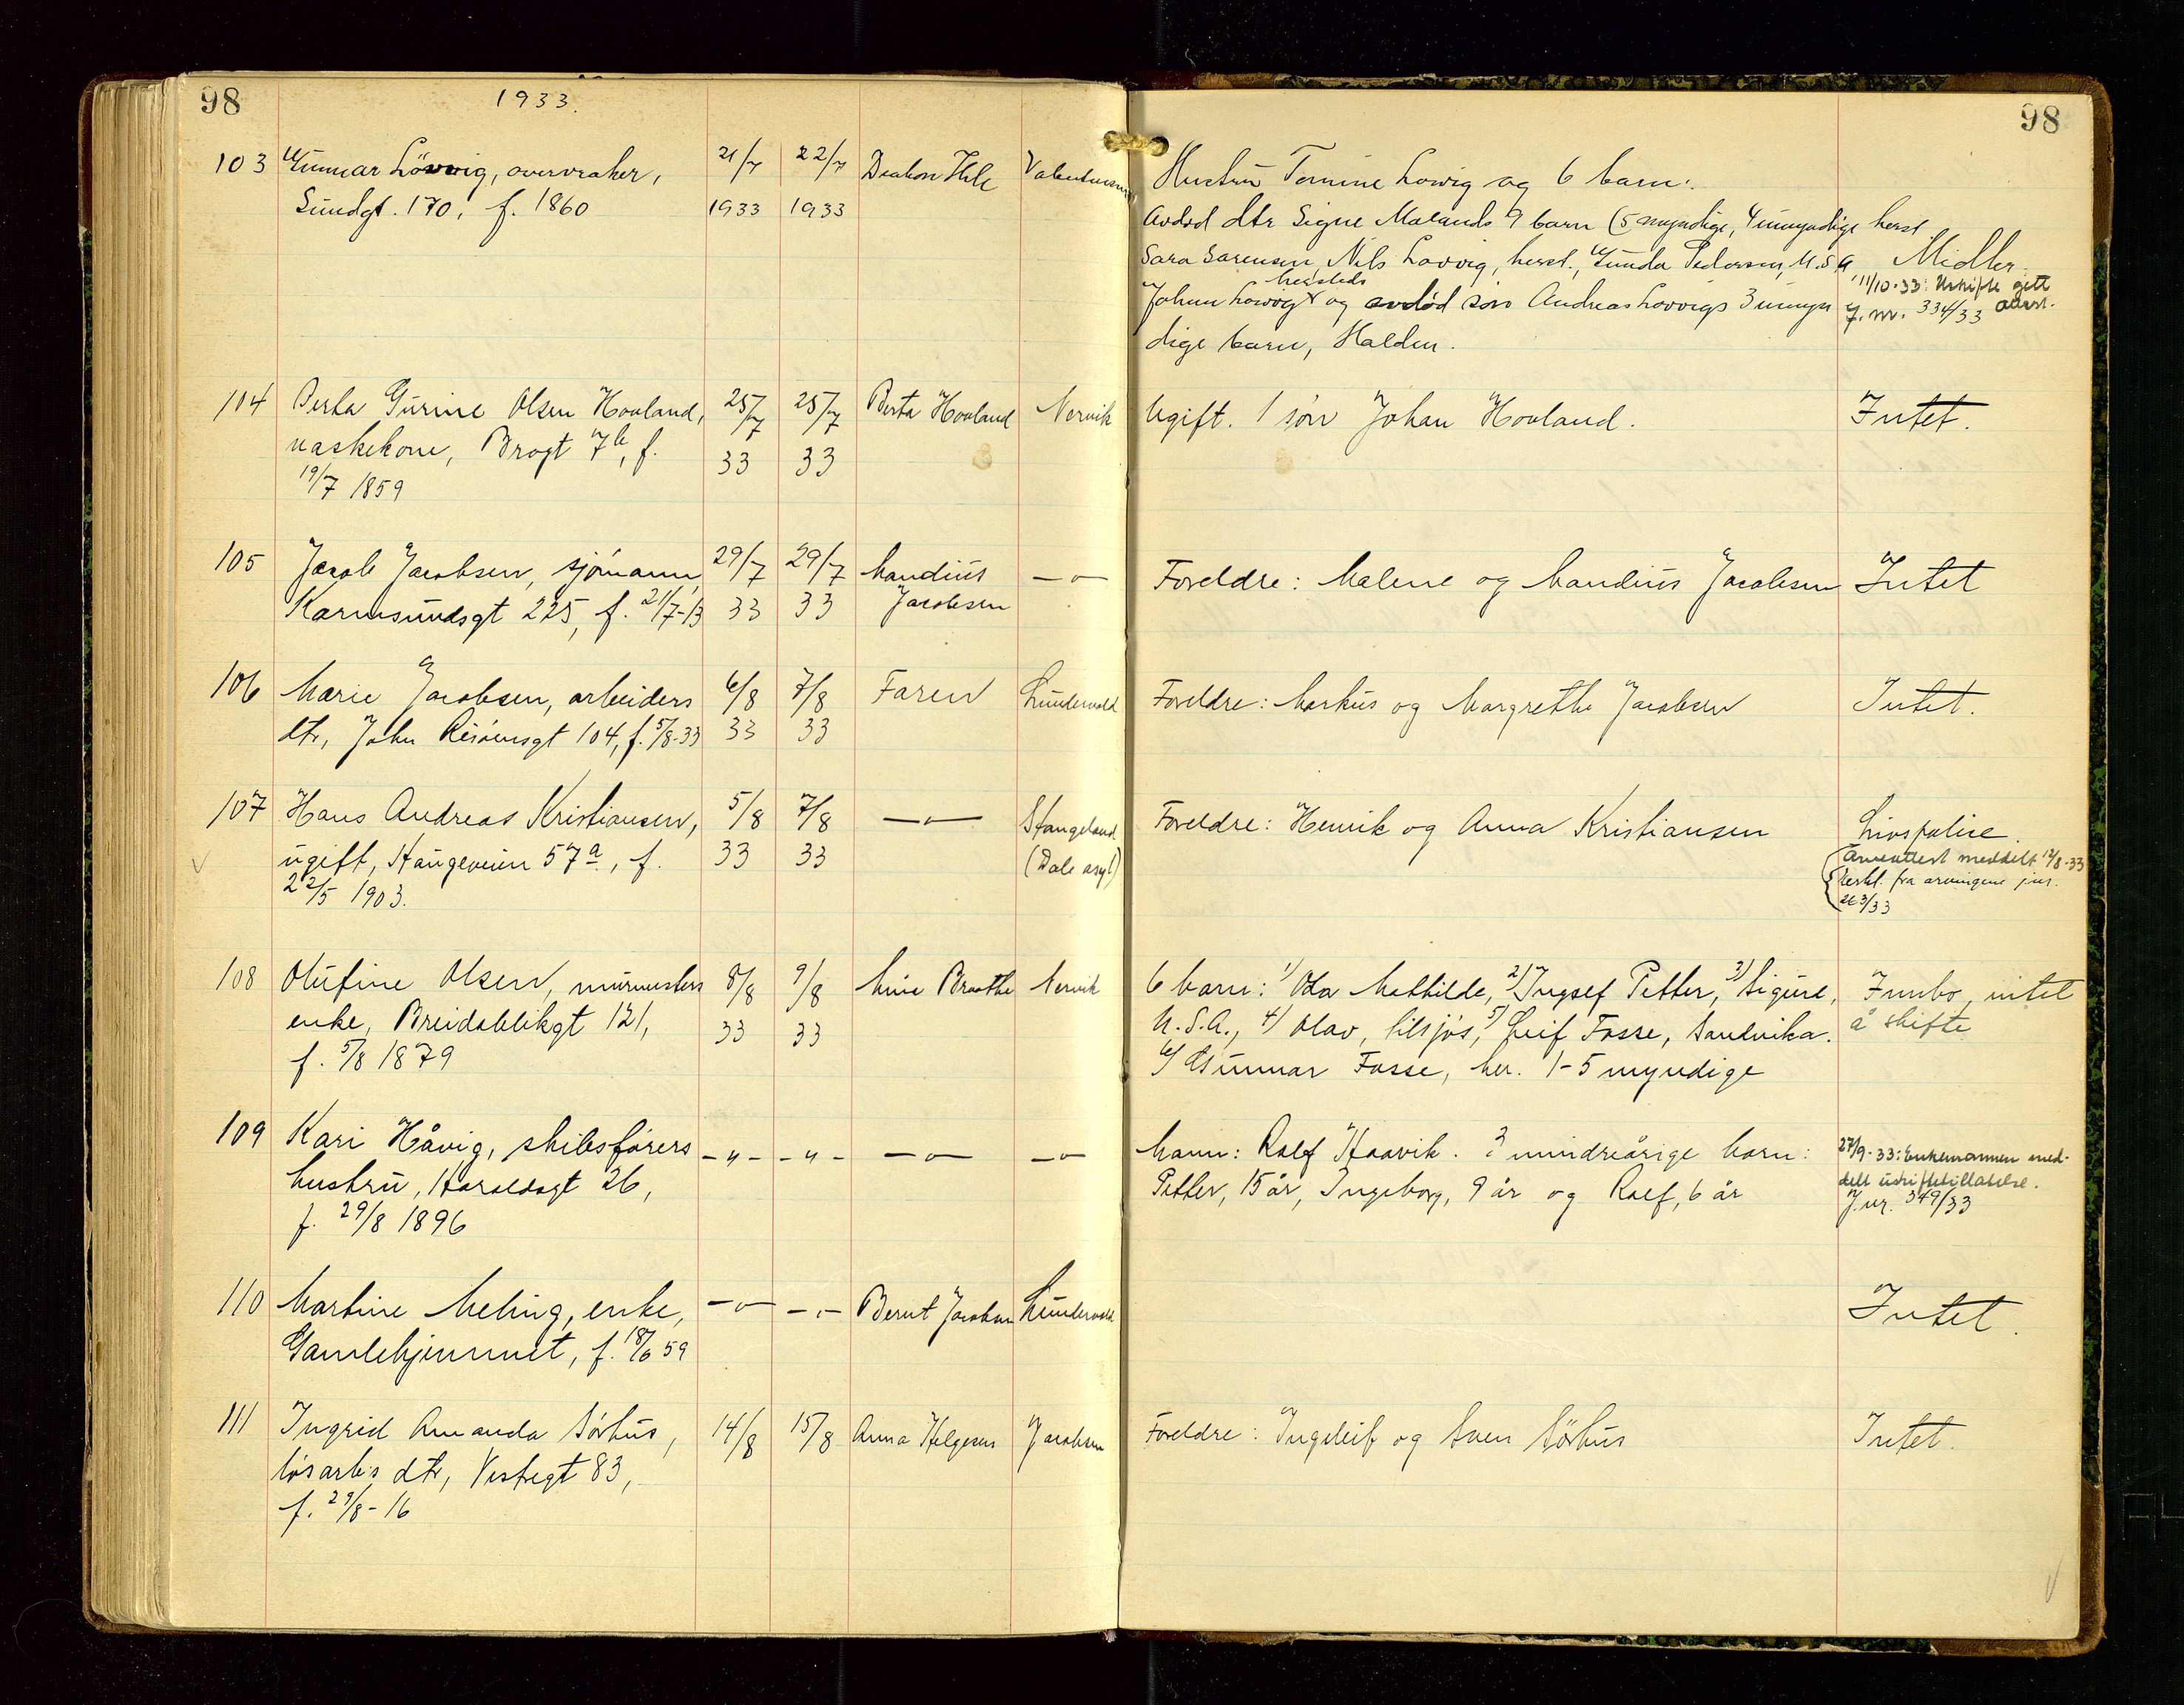 98
1933.
98
103 Gunnar Lövvig, overvraker, 21/7 22/7 Diakon Hile
Sundgt. 170, f. 1860 1933 1933
Hustru Tomine Lovvig og 6 barn:
Avdød dtr Signe Malands 9 barn (5 myndige, 4 umyndige herst
Sara Sørensen, Nils Lovvig, herst., Gunda Pedersen, U.S.A Midler.
hersteds
Johan Lovvig x og avdød søn Andreas Lovvigs 3 umyn
dige barn, Halden.
11/10-33: Uskifte gitt
J. nr. 334/33 attest.
104 Berta Gurine Olsen Hovland, 25/7 25/7 Berta Hovland Nervik Ugift. 1 søn Johan Hovland. Intet.
vaskekone, Brogt 7b, f. 33 33
19/7 1859
105 Jacob Jacobsen, sjømann, 29/7 29/7 Mandius —"— Foreldre: Malene og Mandius Jacobsen Intet
Karmsundsgt 225, f. 21/7-13 33 33 Jacobsen
106 Marie Jacobsen, arbeiders 6/8 7/8 Faren Lundevold Foreldre: Markus og Margrethe Jacobsen Intet.
dtr, John Risøensgt 104, f. 5/8-33 33 33
107 Hans Andreas Kristiansen, 5/8 7/8 —"— Stangeland Foreldre: Henrik og Anna Kristiansen Livspolise.
ugift, Haugeveien 57a, f. 33 33 (Dale asyl)
22/5 1903.
Arveattest meddelt 12/8-33
Erkl. fra arvingene jnr.
263/33
108 Olufine Olsen, murmesters 8/8 9/8 Mine Braathe Nervik 6 barn: 1) Ola Mathilde, 2) Ingsef Petter, 3) Sigurd, Innbo, intet
enke, Breidablikgt 121, 33 33 U.S.A., 4) Olav, tilsjøs, 5) Leif Fosse, Sandvika. å skifte
f. 5/8 1879 6) Gunnar Fosse, her. 1-5 myndige
109 Kari Håvig, skibsførers -"- -"- —"— —"— Mann: Ralf Haavik. 3 mindreårige barn:
hustru, Haraldsgt 26, Petter, 15 år, Ingeborg, 9 år og Ralf, 6 år
f. 29/8 1896
27/9-33: Enkemannen med-
delt uskiftetillatelse.
J.nr. 349/33
110 Martine Meling, enke, —"— -"- Bernt Jacobsen Lundevold Intet.
Gamlehjemmet, f. 18/6 59
111 Ingrid Amanda Sørhus, 14/8 15/8 Anna Helgesen Jacobsen Foreldre: Ingeleif og Sven Sørhus Intet.
løsarb's dtr, Vestregt 83,
f. 29/8-16